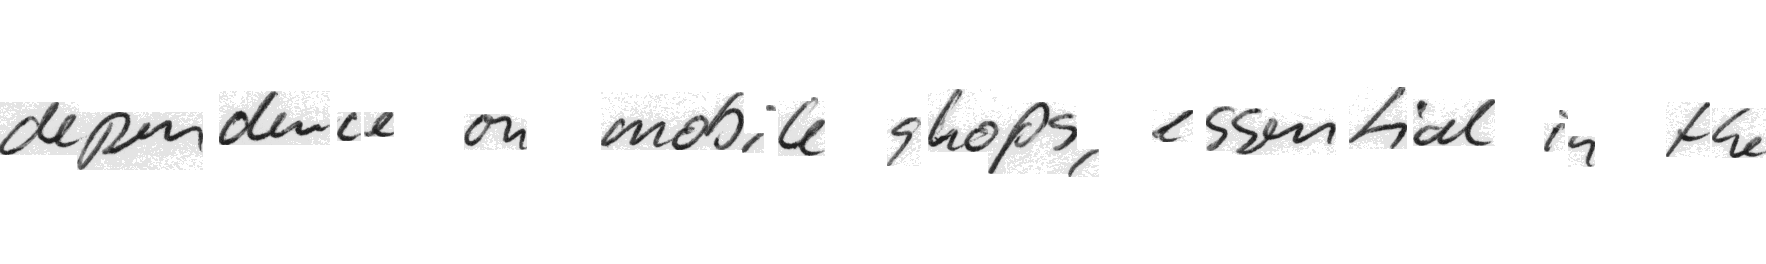 dependence on mobile shops, essential in the